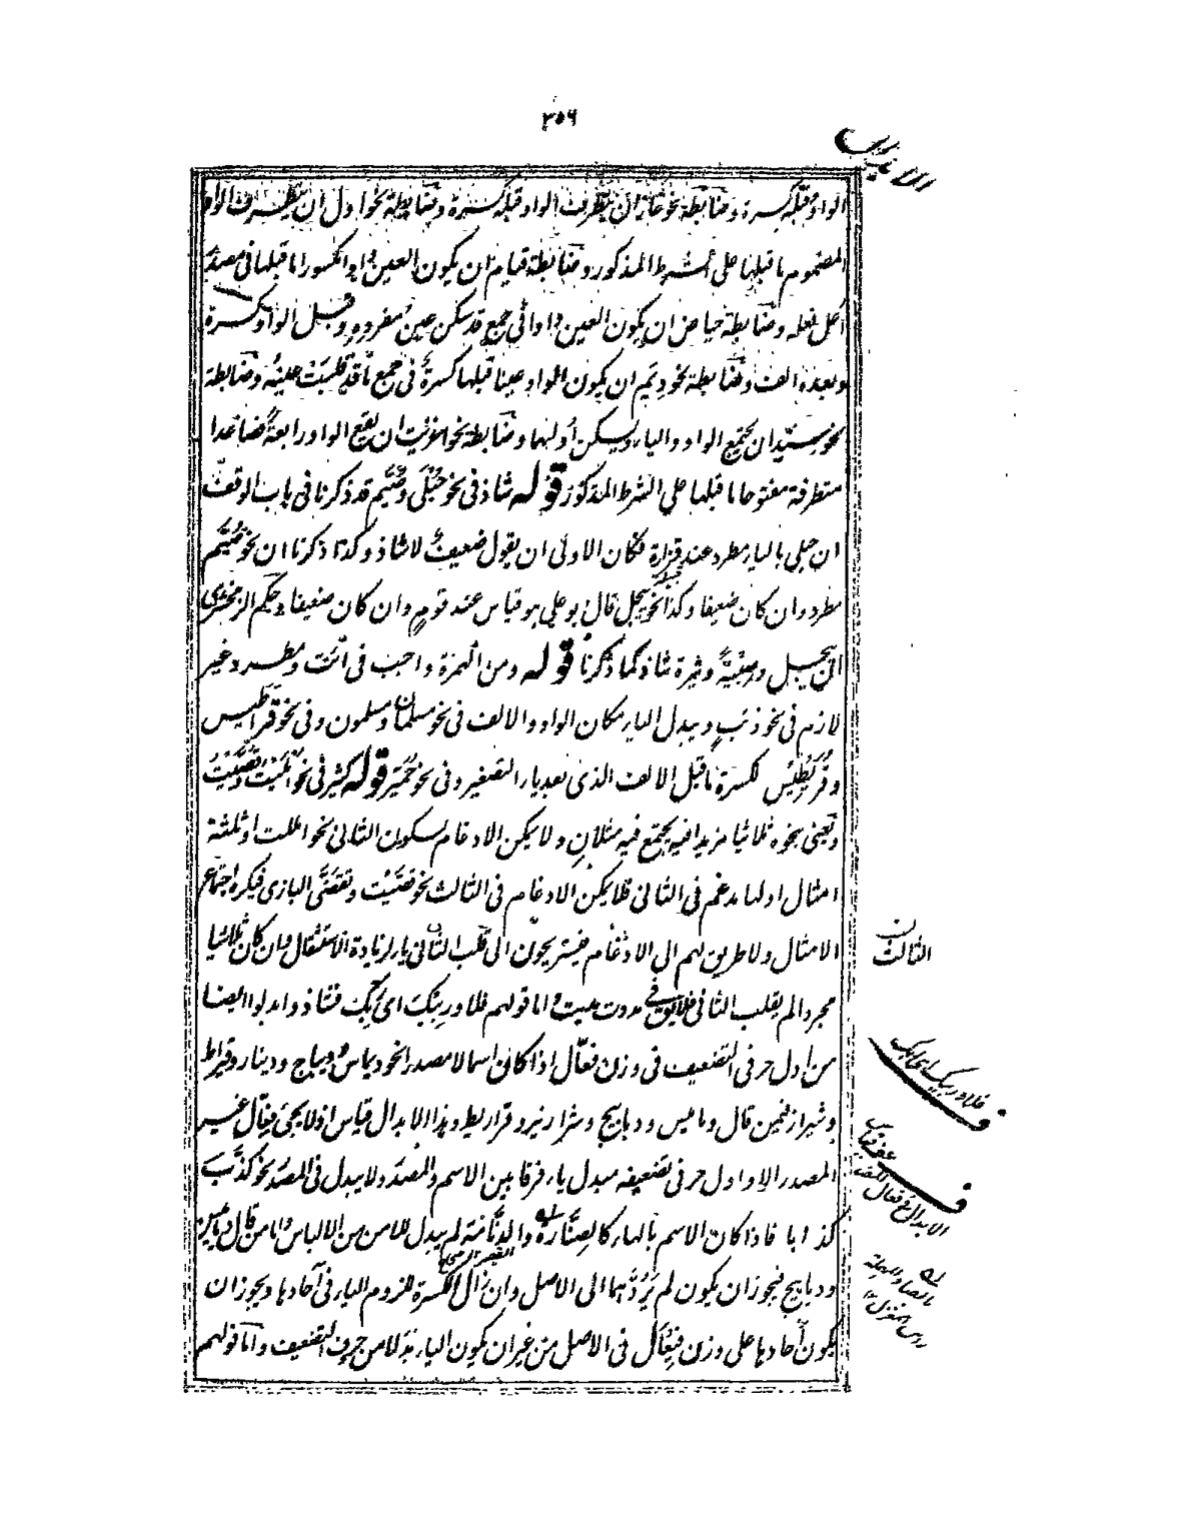 ٣٥٦
الابدال
الواو قبله كسرة وضابطة نحو غاز ان يتطرف الواو قبله كسرة وضابطة نحو ادل ان يتطرف الواو
المضموم ما قبلها على الشرط المذكور وضابطة قيام ان يكون العين واوا مكسورا ما قبلها فى مصدر
اعل فعله وضابطة حياض ان يكون العين واوا فى جمع قد سكن عين مفرده وقبل الواو كسرة
وبعده الف وضابطة نحو ديم ان يكون الواو عينا قبلها كسرة فى جمع ما قد قلبت عينه وضابطة
نحو سيّد ان يجتمع الواو والياء ويسكن أولهما وضابطة نحو اغزيت ان يقع الواو رابعة فصاعدا
متطرفة مفتوحا ما قبلها على الشرط المذكور قوله شاذ فى نحو حُبْلَى وصُيَّم قد ذكرنا فى باب الوقف
ان حبلى بالياء مطرد عند فزارة فكان الاولى ان يقول ضعيف لا شاذ وكذا ذكرنا ان نحو صُيَّم
مطرد وان كان ضعيفا وكذا نحو ييجل قال بو على هو قياس عند قوم وان كان ضعيفا وحكم الزمخشرى
ان ييجل وصِبْيَة وثيرة شاذ كما ذكرنا قوله ومن الهمزة واجب فى ائت ومطرد غير
لازم فى نحو ذئب ويبدل الياء مكان الواو والالف فى نحو مسلمان ومسلمون وفى نحو قراطيس
وقُرَيْطِيْس لكسرة ما قبل الالف الذى بعد ياء التصغير وفى نحو حُمَيِّر قوله كثير فى نحو امليت وقصّيت
ويعنى بنحوه ثلاثيا مزيدا فيه يجتمع فيه مثلان ولا يمكن الادغام لسكون الثانى نحو امللت او ثلثة
امثال اولها مدغم فى الثانى فلا يمكن الادغام فى الثالث نحو قصّيت وتقضّى البازى فيكره اجتماع
الامثال ولا طريق لهم الى الادغام فيستريحون الى قلب الثانى ياء لزيادة الاستثقال وان كان ثلاثيا
مجردا لم يقلب الثانى فلا يق فى مددت مديت واما قولهم فلا وربيك اى ربّك فشاذ وابدلوا ايضا
من اول حرفى التضعيف فى وزن فعّال اذا كان اسما لا مصدرا نحو ديماس وديباج ودينار وقيراط
وشيراز فيمن قال دماميس ودبابيج وشراريز وقراريط وهذا الابدال قياس اذ لا يجئ فعّال غير
المصدر الا واول حرفى تضعيفه مبدل ياء فرقا بين الاسم والمصدر ولا يبدل فى المصدر نحو كذّب
كذابا فاذا كان الاسم بالهاء كالصِنّارة والدنّامة لم يبدل للامن من الالباس واما من قال دياميس
ودبابيج فيجوز ان يكون لم يُرَدّ هما الى الاصل وان زال الكسرة للزوم الياء فى آحادها ويجوز ان
يكون آحادها على وزن فيعال فى الاصل من غير ان يكون الياء بدلا من حرف التضعيف واما قولهم
الثالث ن
فلا وربيك اى ربك
له بالصاد المهملة
راس المغزل ١٢